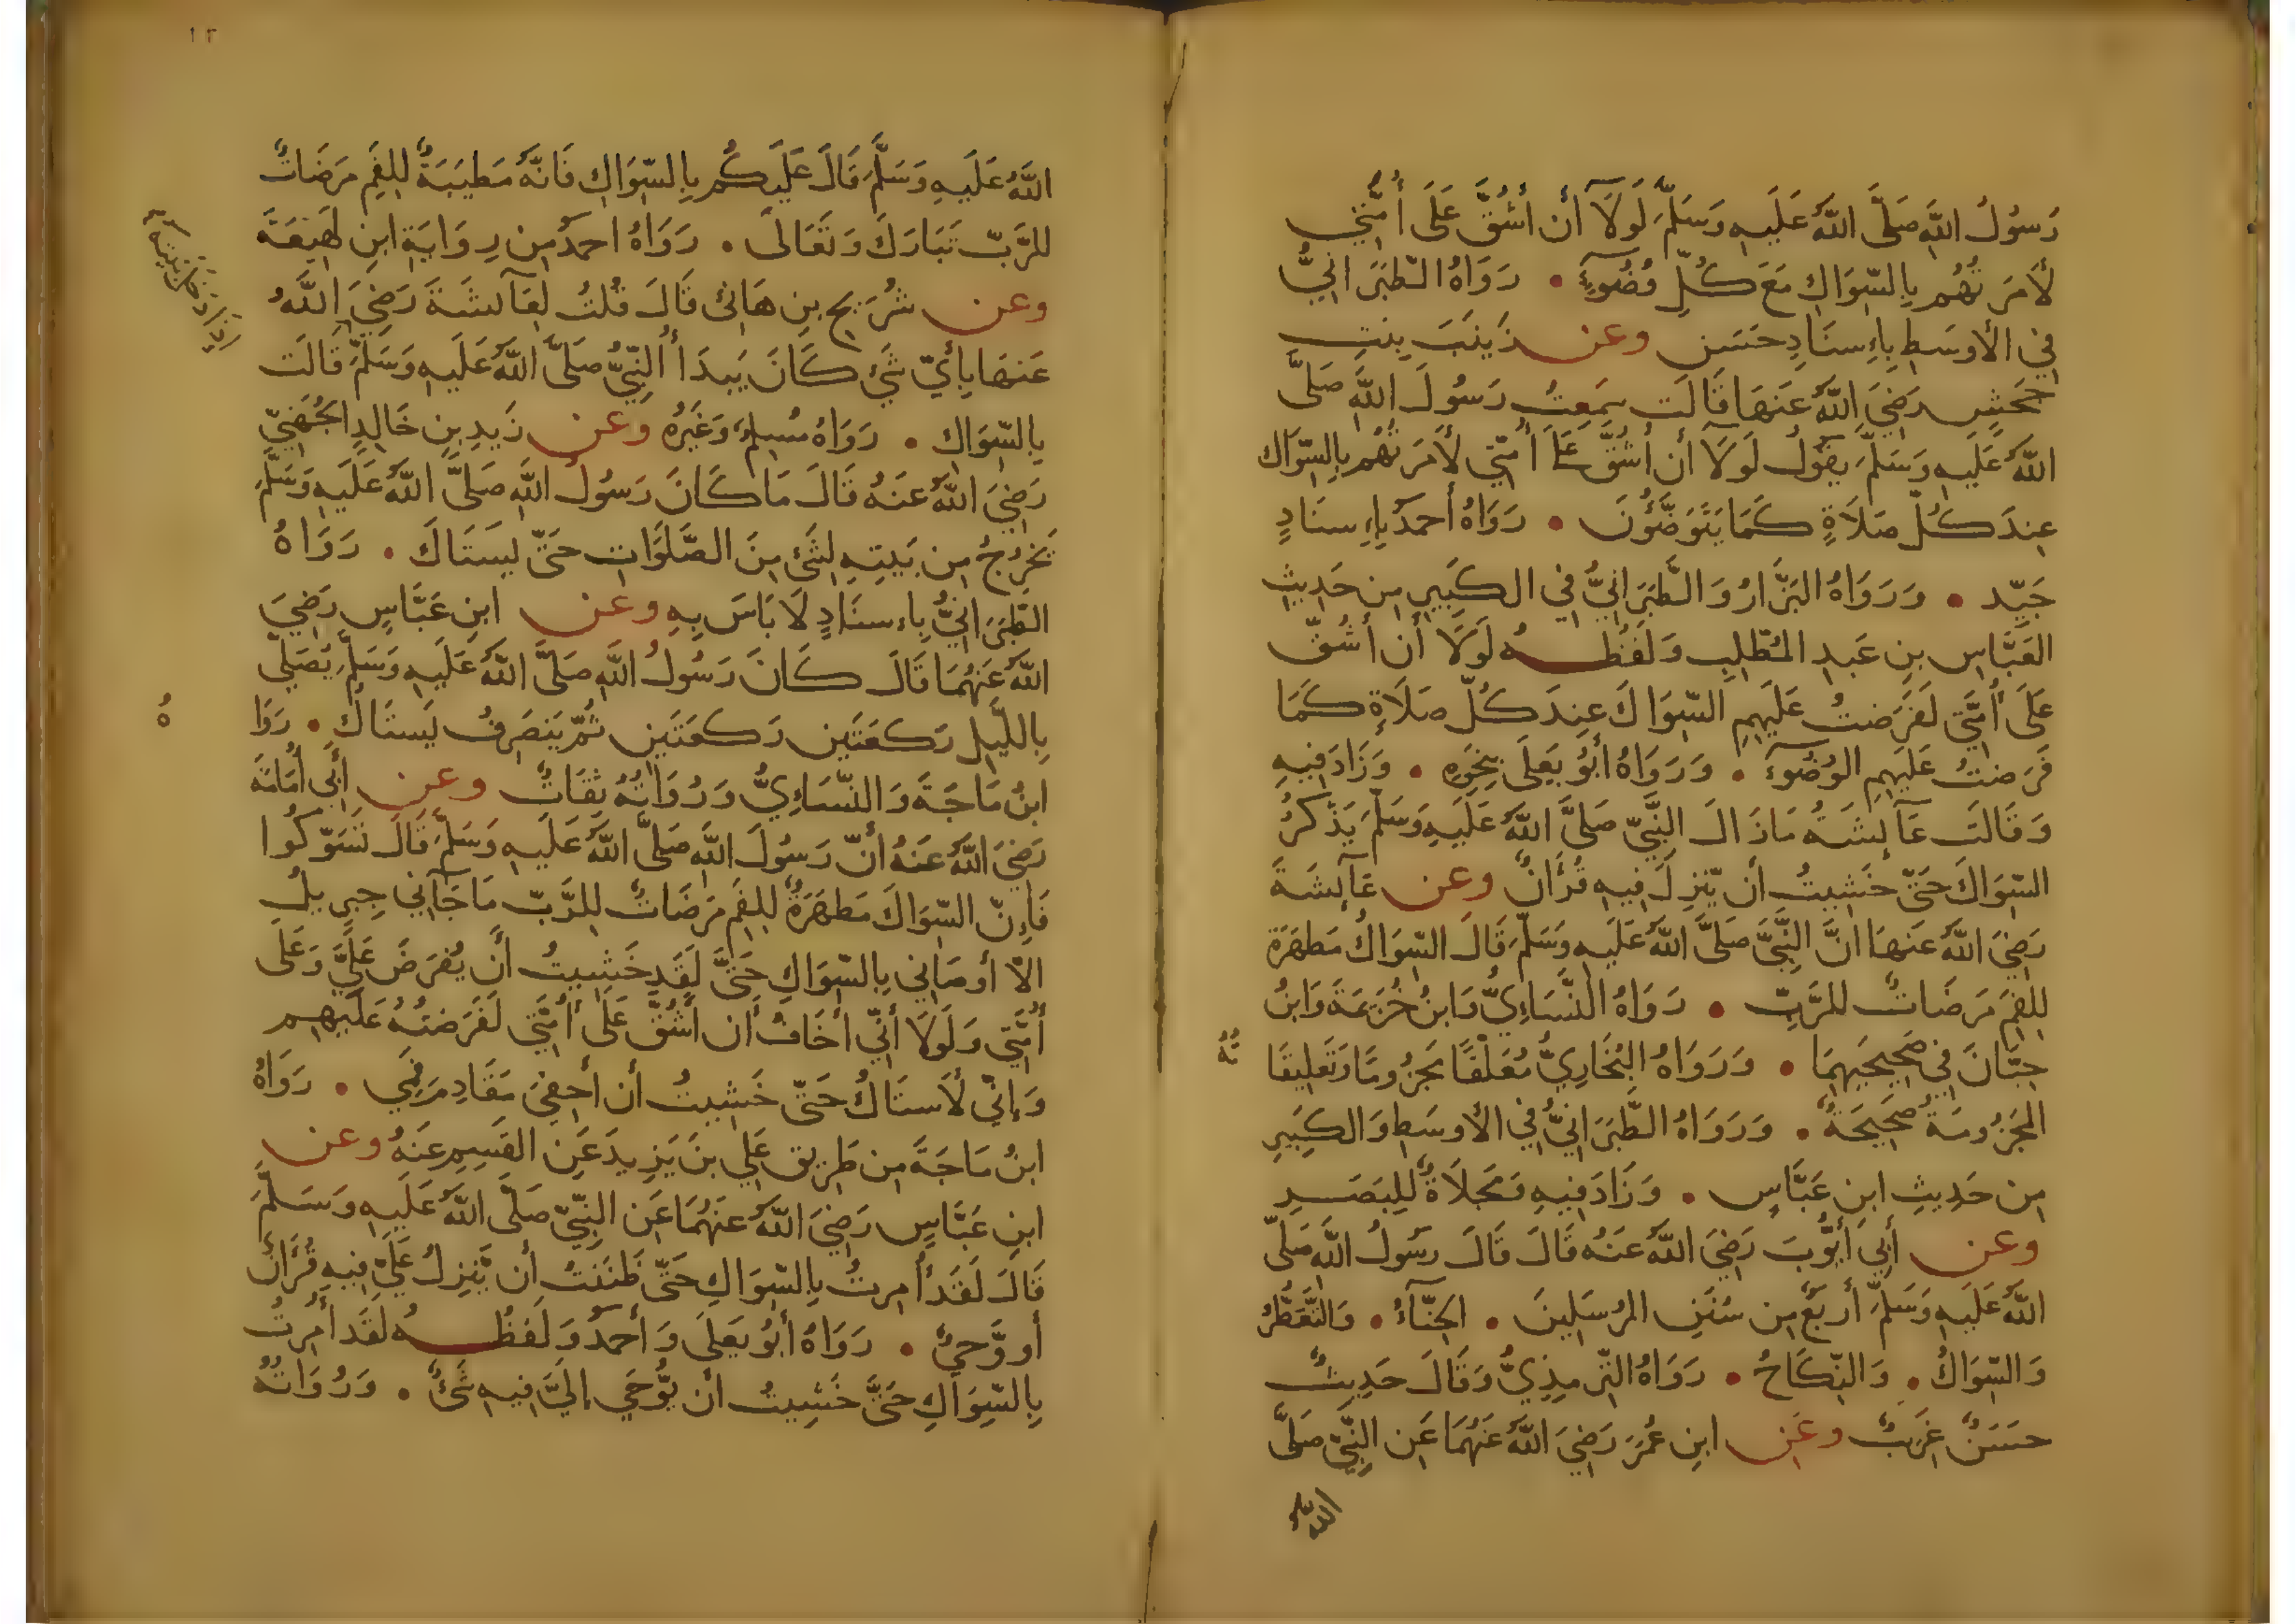 رَسُولُ اللَّهِ صَلَّى اللَّهُ عَلَيهِ وَسَلَّمَ لَولَآ أن أشُقَّ عَلَى أُمَّتِي
لَأمَرتُهُم بِالسِّوَاكِ مَعَ كُلِّ وُضُوءٍ • رَوَاهُ الطَّبَرَانِيُّ
فِي الأوسَطِ بِإِسنَادٍ حَسَنٍ وعن زَينَبَ بِنتِ
جَحشٍ رَضِيَ اللَّهُ عَنهَا قَالَت سَمِعتُ رَسُولَ اللَّهِ صَلَّى
اللَّهُ عَلَيهِ وَسَلَّمَ يَقُولُ لَولَآ أن أشُقَّ عَلَى أُمَّتِي لَأمَرتُهُم بِالسِّوَاك
عِندَ كُلِّ صَلَاةٍ كَمَا يَتَوَضَّؤُنَ • رَوَاهُ أحمَدُ بِإِسنَادٍ
جَيِّد • وَرَوَاهُ البَزَّارُ وَالطَّبَرَانِيُّ فِي الكَبِيرِ مِن حَدِيثِ
العَبَّاسِ بنِ عَبدِ المُطَّلِبِ وَلَفظُـــهُ لَولَا أن أشُقَّ
عَلَى أُمَّتِي لَفَرَضتُ عَلَيهِمِ السِّوَاكَ عِندَ كُلِّ صَلَاةٍ كَمَا
فَرَضتُ عَلَيهِمِ الوُضُوءَ • وَرَوَاهُ أبُو يَعلَى بِنَحوِهِ • وَزَادَ فِيهِ
وَقَالَت عَآئِشَةُ مَازَالَ النَّبِيُّ صَلَّى اللَّهُ عَلَيهِ وَسَلَّمَ يَذكُرُ
السِّوَاكَ حَتَّى خَشِيتُ أن يَّنزِلَ فِيهِ قُرآنٌ وعن عَآئِشَةَ
رَضِيَ اللَّهُ عَنهَا انَّ النَّبِيَّ صَلَّى اللَّهُ عَلَيهِ وَسَلَّمَ قَالَ السِّوَاكُ مَطهَرَة
لِلفَمِ مَرضَاتٌ لِلرَّبِّ • رَوَاهُ النَّسَاءِيُّ وَابنُ خُزَيمَةَ وَابنُ
حِبَّانَ فِي صَحِيحَيهِمَا • وَرَوَاهُ البُخَارِيُّ مُعَلَّقًا مَجزُومًا وَتَعلِيقَا
تُهُ
المَجزُومَةُ صَحِيحَةٌ • وَرَوَاهُ الطَّبَرَانِيُّ فِي الأوسَطِ وَالكَبِيرِ
مِن حَدِيثِ ابنِ عَبَّاسٍ • وَزَادَ فِيهِ وَمَجلَاةٌ لِلبَصَرِ
وعن أبِي أيُّوبَ رَضِيَ اللَّهُ عَنهُ قَالَ قَالَ رَسُولُ اللَّهِ صَلَّى
اللَّهُ عَلَيهِ وَسَلَّمَ أربَعٌ مِن سُنَنِ المُرسَلِينَ • الحِنَّآءُ • وَالتَّعَطُّرُ
وَالسِّوَاكُ • وَالنِّكَاحُ • رَوَاهُ التِّرمِذِيُّ وَقَالَ حَدِيثٌ
حَسَنٌ غَرِيبٌ وعَنِ ابنِ عُمَرَ رَضِيَ اللَّهُ عَنهُمَا عَنِ النَّبِيِّ صَلَّى
اللَّهُ
١٣
اللَّهُ عَلَيهِ وَسَلَّمَ قَالَ عَلَيكُم بِالسِّوَاكِ فَانَّهُ مَطيَبَةٌ لِلفَمِ مَرضَاتٌ
لِلرَّبِّ تَبَارَكَ وَتَعَالَى • رَوَاهُ احمَدُ مِن رِوَايَةِ ابنِ لَهِيعَةَ
وعن شُرَيحِ بنِ هَانِئ قَالَ قُلتُ لِعَآئِشَةَ رَضِيَ اللَّهُ
عَنهَا بِأيِّ شَيٍ كَانَ يَبدَأُ النَّبِيُّ صَلَّى اللَّهُ عَلَيهِ وَسَلَّمَ قَالَت
بِالسِّوَاكِ • رَوَاهُ مُسلِمٌ وَغَيرُهُ وعن زَيدِ بنِ خَالِدٍ الجُهَنِيِّ
رَضِيَ اللَّهُ عَنهُ قَالَ مَا كَانَ رَسُولُ اللَّهِ صَلَّى اللَّهُ عَلَيهِ وَسَلَّمَ
يَخرُجُ مِن بَيتِهِ لِشَيٍ مِنَ الصَّلَوَاتِ حَتَّى يَستَاكَ • رَوَاهُ
الطَّبَرَانِيُّ بِإِسنَادٍ لَا بَاسَ بِهِ وعن ابنِ عَبَّاسٍ رَضِيَ
اللَّهُ عَنهُمَا قَالَ كَانَ رَسُولُ اللَّهِ صَلَّى اللَّهُ عَلَيهِ وَسَلَّمَ يُصَلِّي
بِاللَّيلِ رَكعَتَينِ رَكعَتَينِ ثُمَّ يَنصَرِفُ يَستَاكُ • رَوَا
هُ
ابنُ مَاجَةَ وَالنَّسَاءِيُّ وَرُوَاتُهُ ثِقَاتٌ وعن أبِي أُمَامَةَ
رَضِيَ اللَّهُ عَنهُ أنَّ رَسُولَ اللَّهِ صَلَّى اللَّهُ عَلَيهِ وَسَلَّمَ قَالَ تَسَوَّكُوا
فَإِنَّ السِّوَاكَ مَطهَرَةٌ لِلفَمِ مَرضَاتٌ لِلرَّبِّ مَا جَآنِي جِبرِيلُ
الَّا أوصَانِي بِالسِّوَاكِ حَتَّى لَقَد خَشِيتُ أن يُفرَضَ عَلَيَّ وَعَلَى
أُمَّتِي وَلَولَا أنِّي أخَافُ أن أشُقَّ عَلَى أُمَّتِي لَفَرَضتُهُ عَلَيهِم
وَإنِّي لَأستَاكُ حَتَّى خَشِيتُ أن أُحفِيَ مَقَادِمَ فَمِي • رَوَاهُ
ابنُ مَاجَةَ مِن طَرِيقِ عَلِي بنَ يَزِيدَ عَنِ القَسِمِ عَنهُ وعن
ابنِ عَبَّاسٍ رَضِيَ اللَّهُ عَنهُمَا عَنِ النَّبِيِّ صَلَّى اللَّهُ عَلَيهِ وَسَلَّمَ
قَالَ لَقَد أُمِرتُ بِالسِّوَاكِ حَتَّى ظَنَنتُ أن يَّنزِلُ عَلَيَّ فِيهِ قُرآنٌ
أو وَّحيٌ • رَوَاهُ أبُو يَعلَى وَأحمَدُ وَلَفظُـــهُ لَقَد أُمِرتُ
بِالسِّوَاكِ حَتَّى خَشِيتُ أن يُّوحَي إلَيَّ فِيهِ شَيٌ • وَرُوَاتُهُ